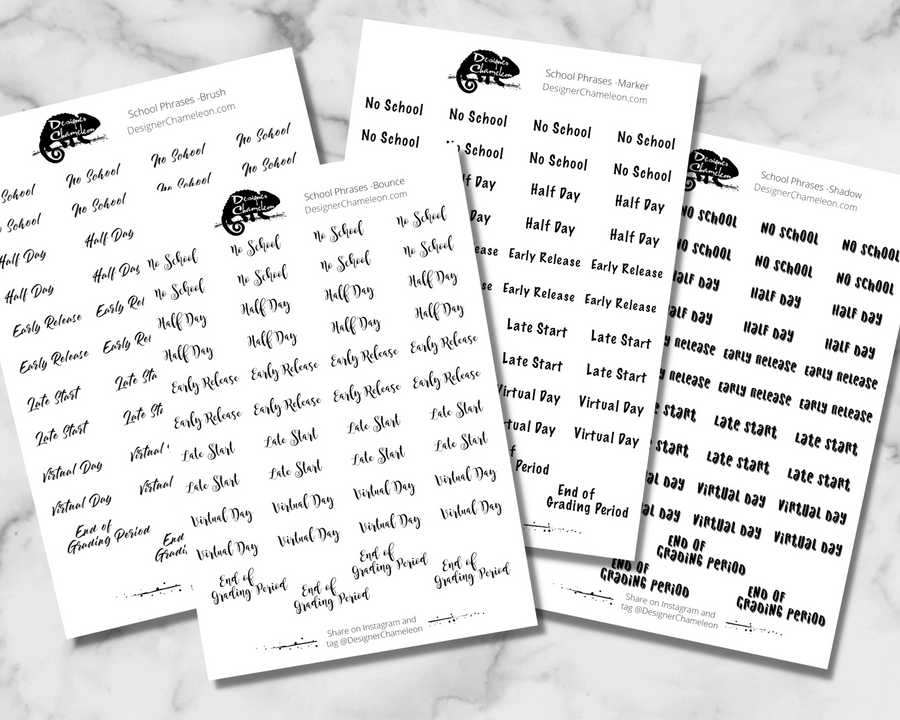 Designer
Chameleon
School Phrases -Brush
DesignerChameleon.com
School No School No School No School
School No School No School No School
Half Day Half Day
Half Day Half Da
Early Release Early Rel
Early Release Early Rel
Late Start Late Sta
Late Start Late St
Virtual Day Virtual
Virtual Day Virtual
End of
Grading Period
Designer
Chameleon
School Phrases -Bounce
DesignerChameleon.com
No School No School No School No School
No School No School No School No School
Half Day Half Day Half Day Half Day
Half Day Half Day Half Day Half Day
Early Release Early Release Early Release Early Release
Early Release Early Release Early Release Early Release
Late Start Late Start Late Start Late Start
Late Start Late Start Late Start Late Start
Virtual Day Virtual Day Virtual Day Virtual Day
Virtual Day Virtual Day Virtual Day Virtual Day
End of
Grading Period
End of
Grading Period
End of
Grading Period
End of
Grading Period
Share on Instagram and
tag @DesignerChameleon
Designer
Chameleon
School Phrases -Marker
DesignerChameleon.com
No School No School No School No School
No School School No School No School
f Day Half Day Half Day
Day Half Day Half Day
ease Early Release Early Release
Early Release Early Release
Late Start Late Start
Late Start Late Start
Virtual Day Virtual Day
tual Day Virtual Day
f
Period
End of
Grading Period
Designer
Chameleon
School Phrases -Shadow
DesignerChameleon.com
No School No School No School
No School No School No School
Half Day Half Day Half Day
alf Day Half Day Half Day
Release Early Release Early Release
Release Early Release Early Release
Start Late Start Late Start
start Late Start Late Start
Day Virtual Day Virtual Day
al Day Virtual Day Virtual Day
End of
Grading Period
End of
Grading Period
End of
Grading Period
Share on Instagram and
tag @DesignerChameleon